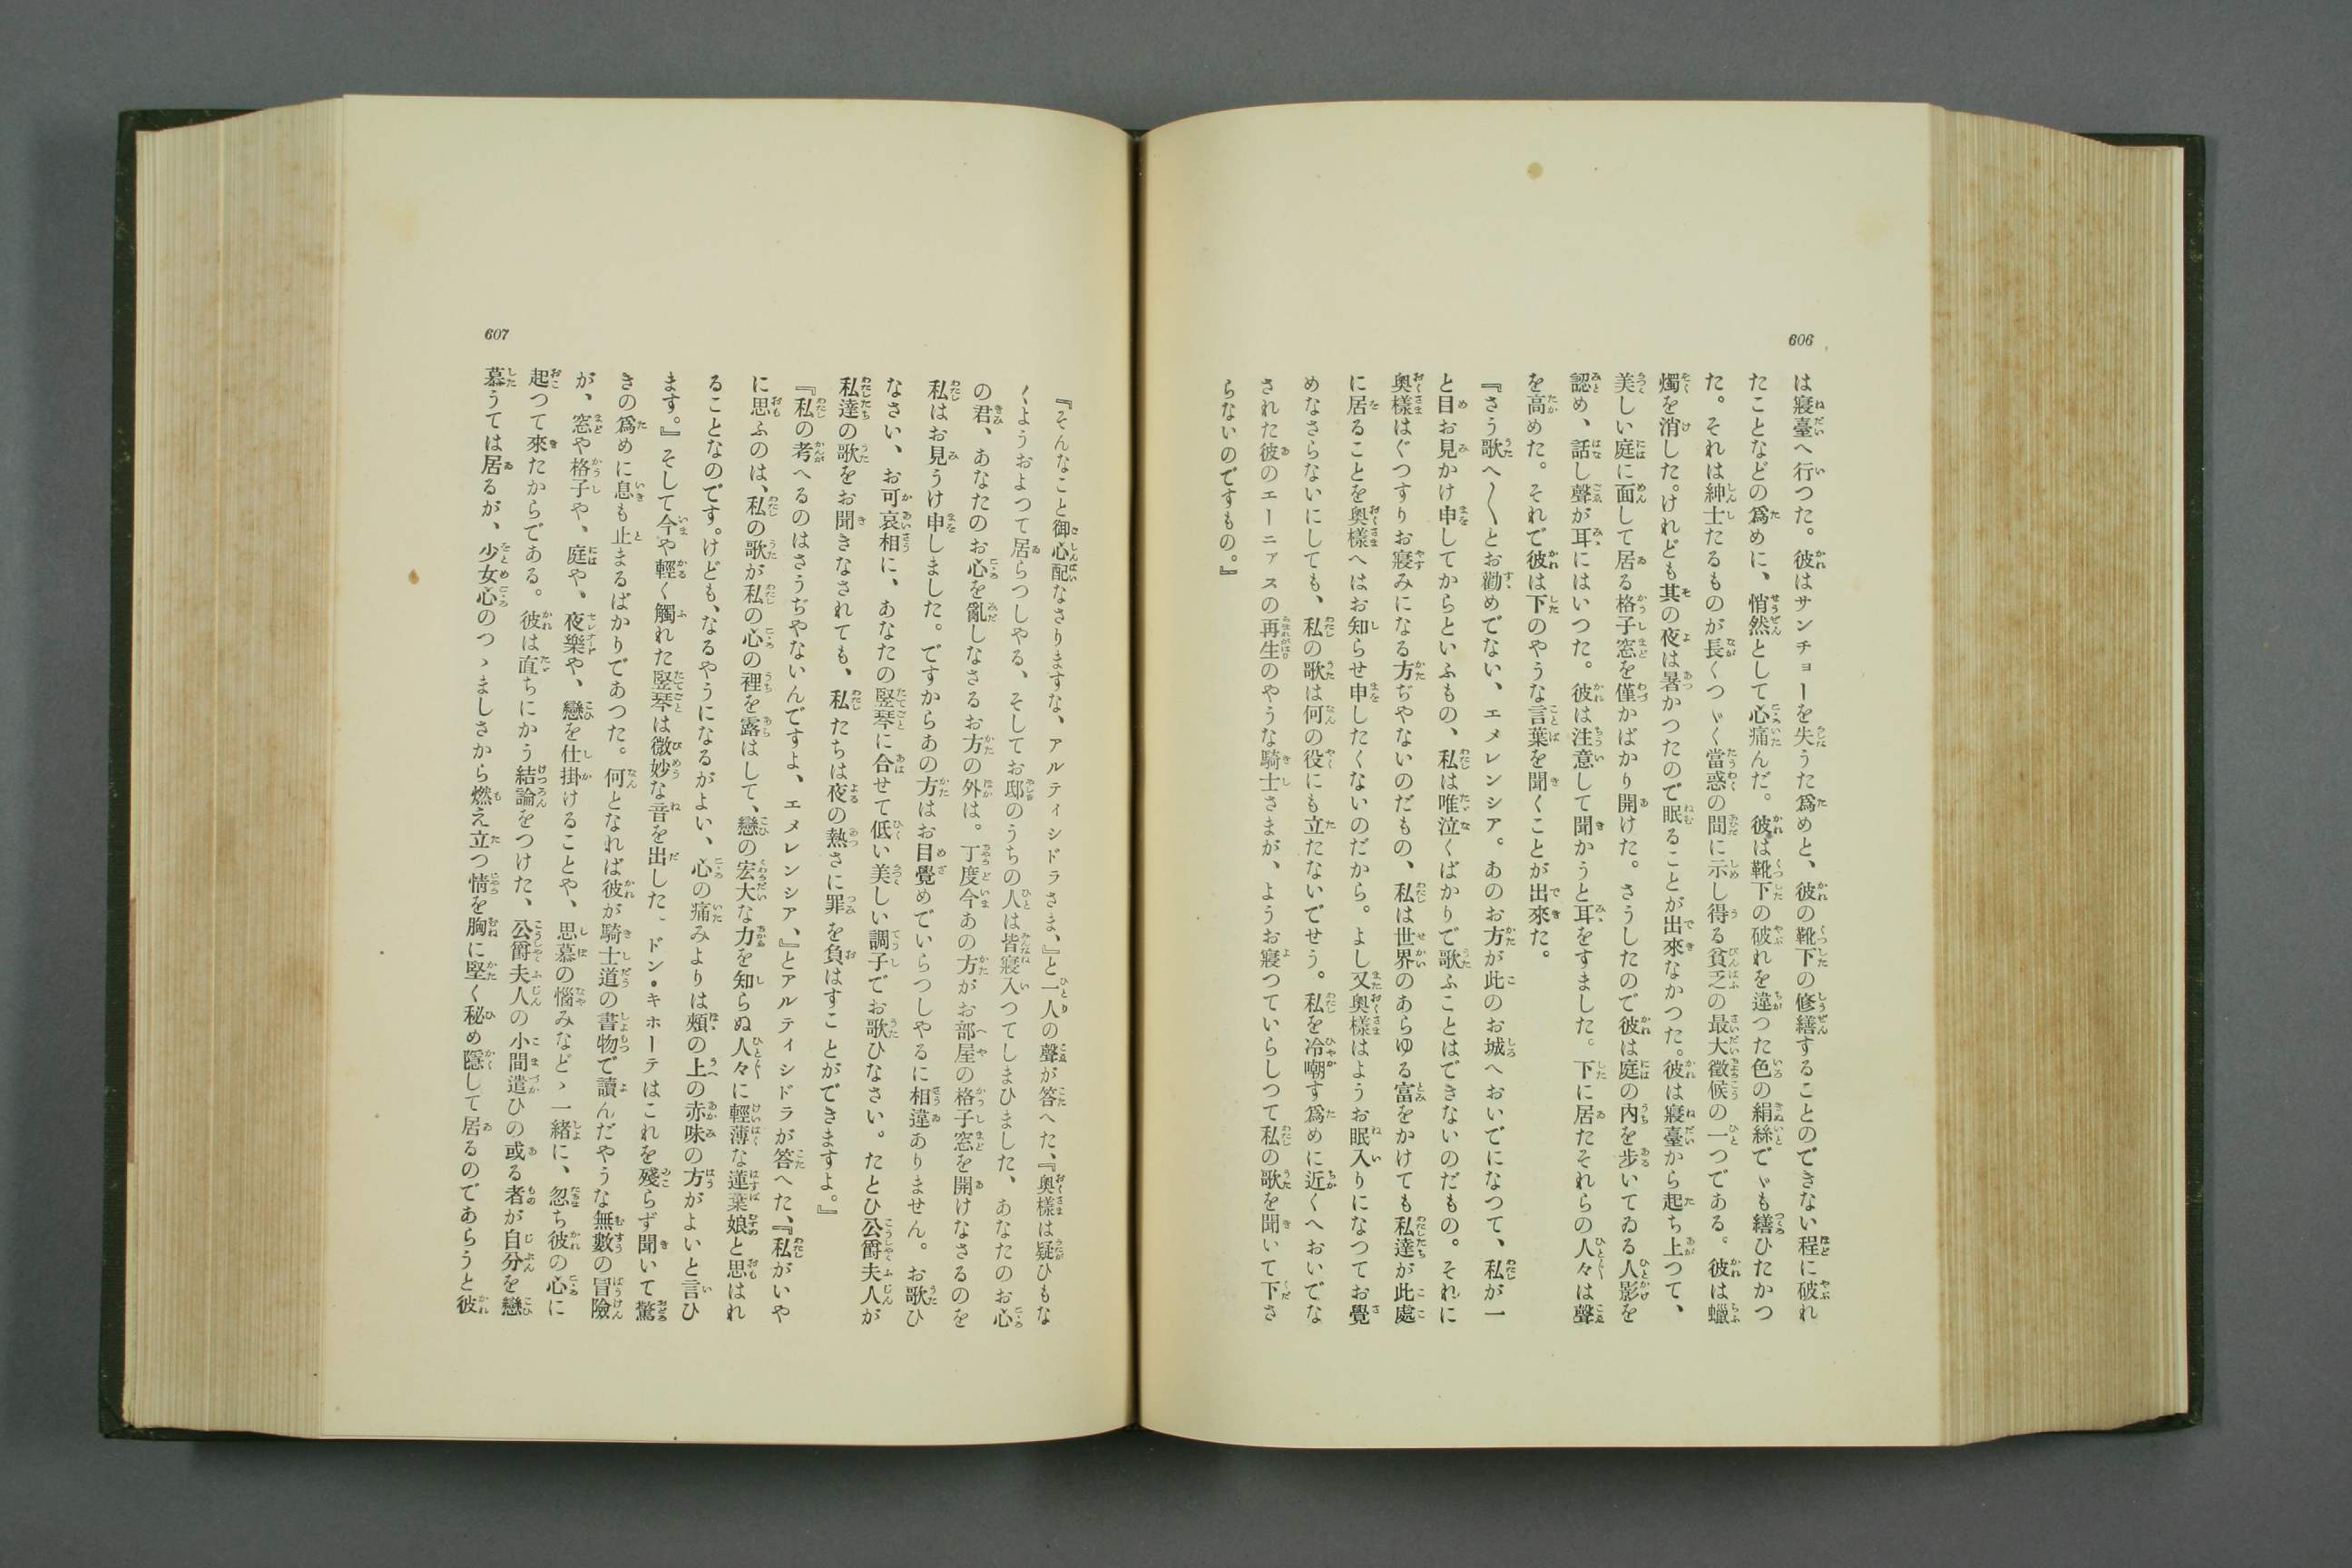 606
は寢臺へ行つた。彼はサンチョーを失うた爲めと、彼の靴下の修繕することのできない程に破れ
たことなどの爲めに、悄然として心痛んだ。彼は靴下の破れを違つた色の絹絲でゞも繕ひたかつ
た。それは紳士たるものが長くつゞく當惑の間に示し得る貧乏の最大徵候の一つである。彼は蠟
燭を消した。けれども其の夜は暑かつたので眠ることが出來なかつた。彼は寢臺から起ち上つて、
美しい庭に面して居る格子窓を僅かばかり開けた。さうしたので彼は庭の內を步いてゐる人影を
認め、話し聲が耳にはいつた。彼は注意して聞かうと耳をすました。下に居たそれらの人々は聲
を高めた。それで彼は下のやうな言葉を聞くことが出來た。
『さう歌へ〱とお勸めでない、エメレンシア。あのお方が此のお城へおいでになつて、私が一
と目お見かけ申してからといふもの、私は唯泣くばかりで歌ふことはできないのだもの。それに
奧樣はぐつすりお寢みになる方ぢやないのだもの、私は世界のあらゆる富をかけても私達が此處
に居ることを奧樣へはお知らせ申したくないのだから。よし又奧樣はようお眠入りになつてお覺
めなさらないにしても、私の歌は何の役にも立たないでせう。私を冷嘲す爲めに近くへおいでな
された彼のエーニァスの再生のやうな騎士さまが、ようお寢つていらしつて私の歌を聞いて下さ
らないのですもの。』
『そんなこと御心配なさりますな、アルティシドラさま、』と一人の聲が答へた、『奧樣は疑ひもな
くようおよつて居らつしやる、そしてお邸のうちの人は皆寢入つてしまひました、あなたのお心
の君、あなたのお心を亂しなさるお方の外は。丁度今あの方がお部屋の格子窓を開けなさるのを
私はお見うけ申しました。ですからあの方はお目覺めでいらつしやるに相違ありません。お歌ひ
なさい、お可哀相に、あなたの竪琴に合せて低い美しい調子でお歌ひなさい。たとひ公爵夫人が
私達の歌をお聞きなされても、私たちは夜の熱さに罪を負はすことができますよ。』
『私の考へるのはさうぢやないんですよ、エメレンシア、』とアルティシドラが答へた、『私がいや
に思ふのは、私の歌が私の心の裡を露はして、戀の宏大な力を知らぬ人々に輕薄な蓮葉娘と思はれ
ることなのです。けども、なるやうになるがよい、心の痛みよりは頰の上の赤味の方がよいと言ひ
ます。』そして今や輕く觸れた竪琴は微妙な音を出した。ドン・キホーテはこれを殘らず聞いて驚
きの爲めに息も止まるばかりであつた。何となれば彼が騎士道の書物で讀んだやうな無數の冒險
が、窓や格子や、庭や、夜樂や、戀を仕掛けることや、思慕の惱みなどゝ一緖に、忽ち彼の心に
起つて來たからである。彼は直ちにかう結論をつけた、公爵夫人の小間遣ひの或る者が自分を戀
慕うては居るが、少女心のつゝましさから燃え立つ情を胸に堅く秘め隱して居るのであらうと彼
607